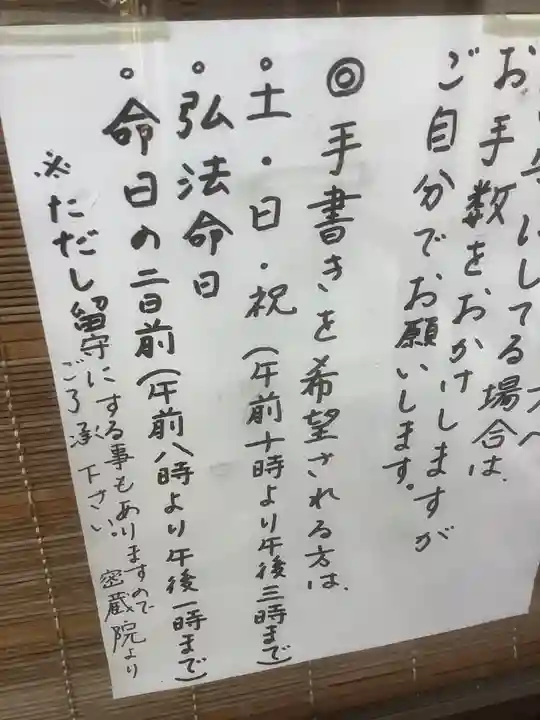 にしてる場合は、
お手数をおかけしますが
ご自分でお願いします。
◎手書きを希望される方は、
・土・日・祝(午前十時より午後三時まで)
・弘法命日
・命日の二日前(午前八時より午後一時まで)
※ただし留守にする事もありますので
ご了承下さい。 密蔵院より